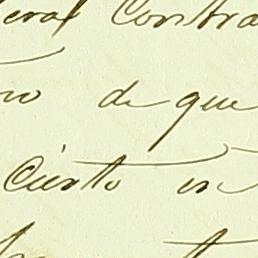 eral Contra
no de que
Cierto en